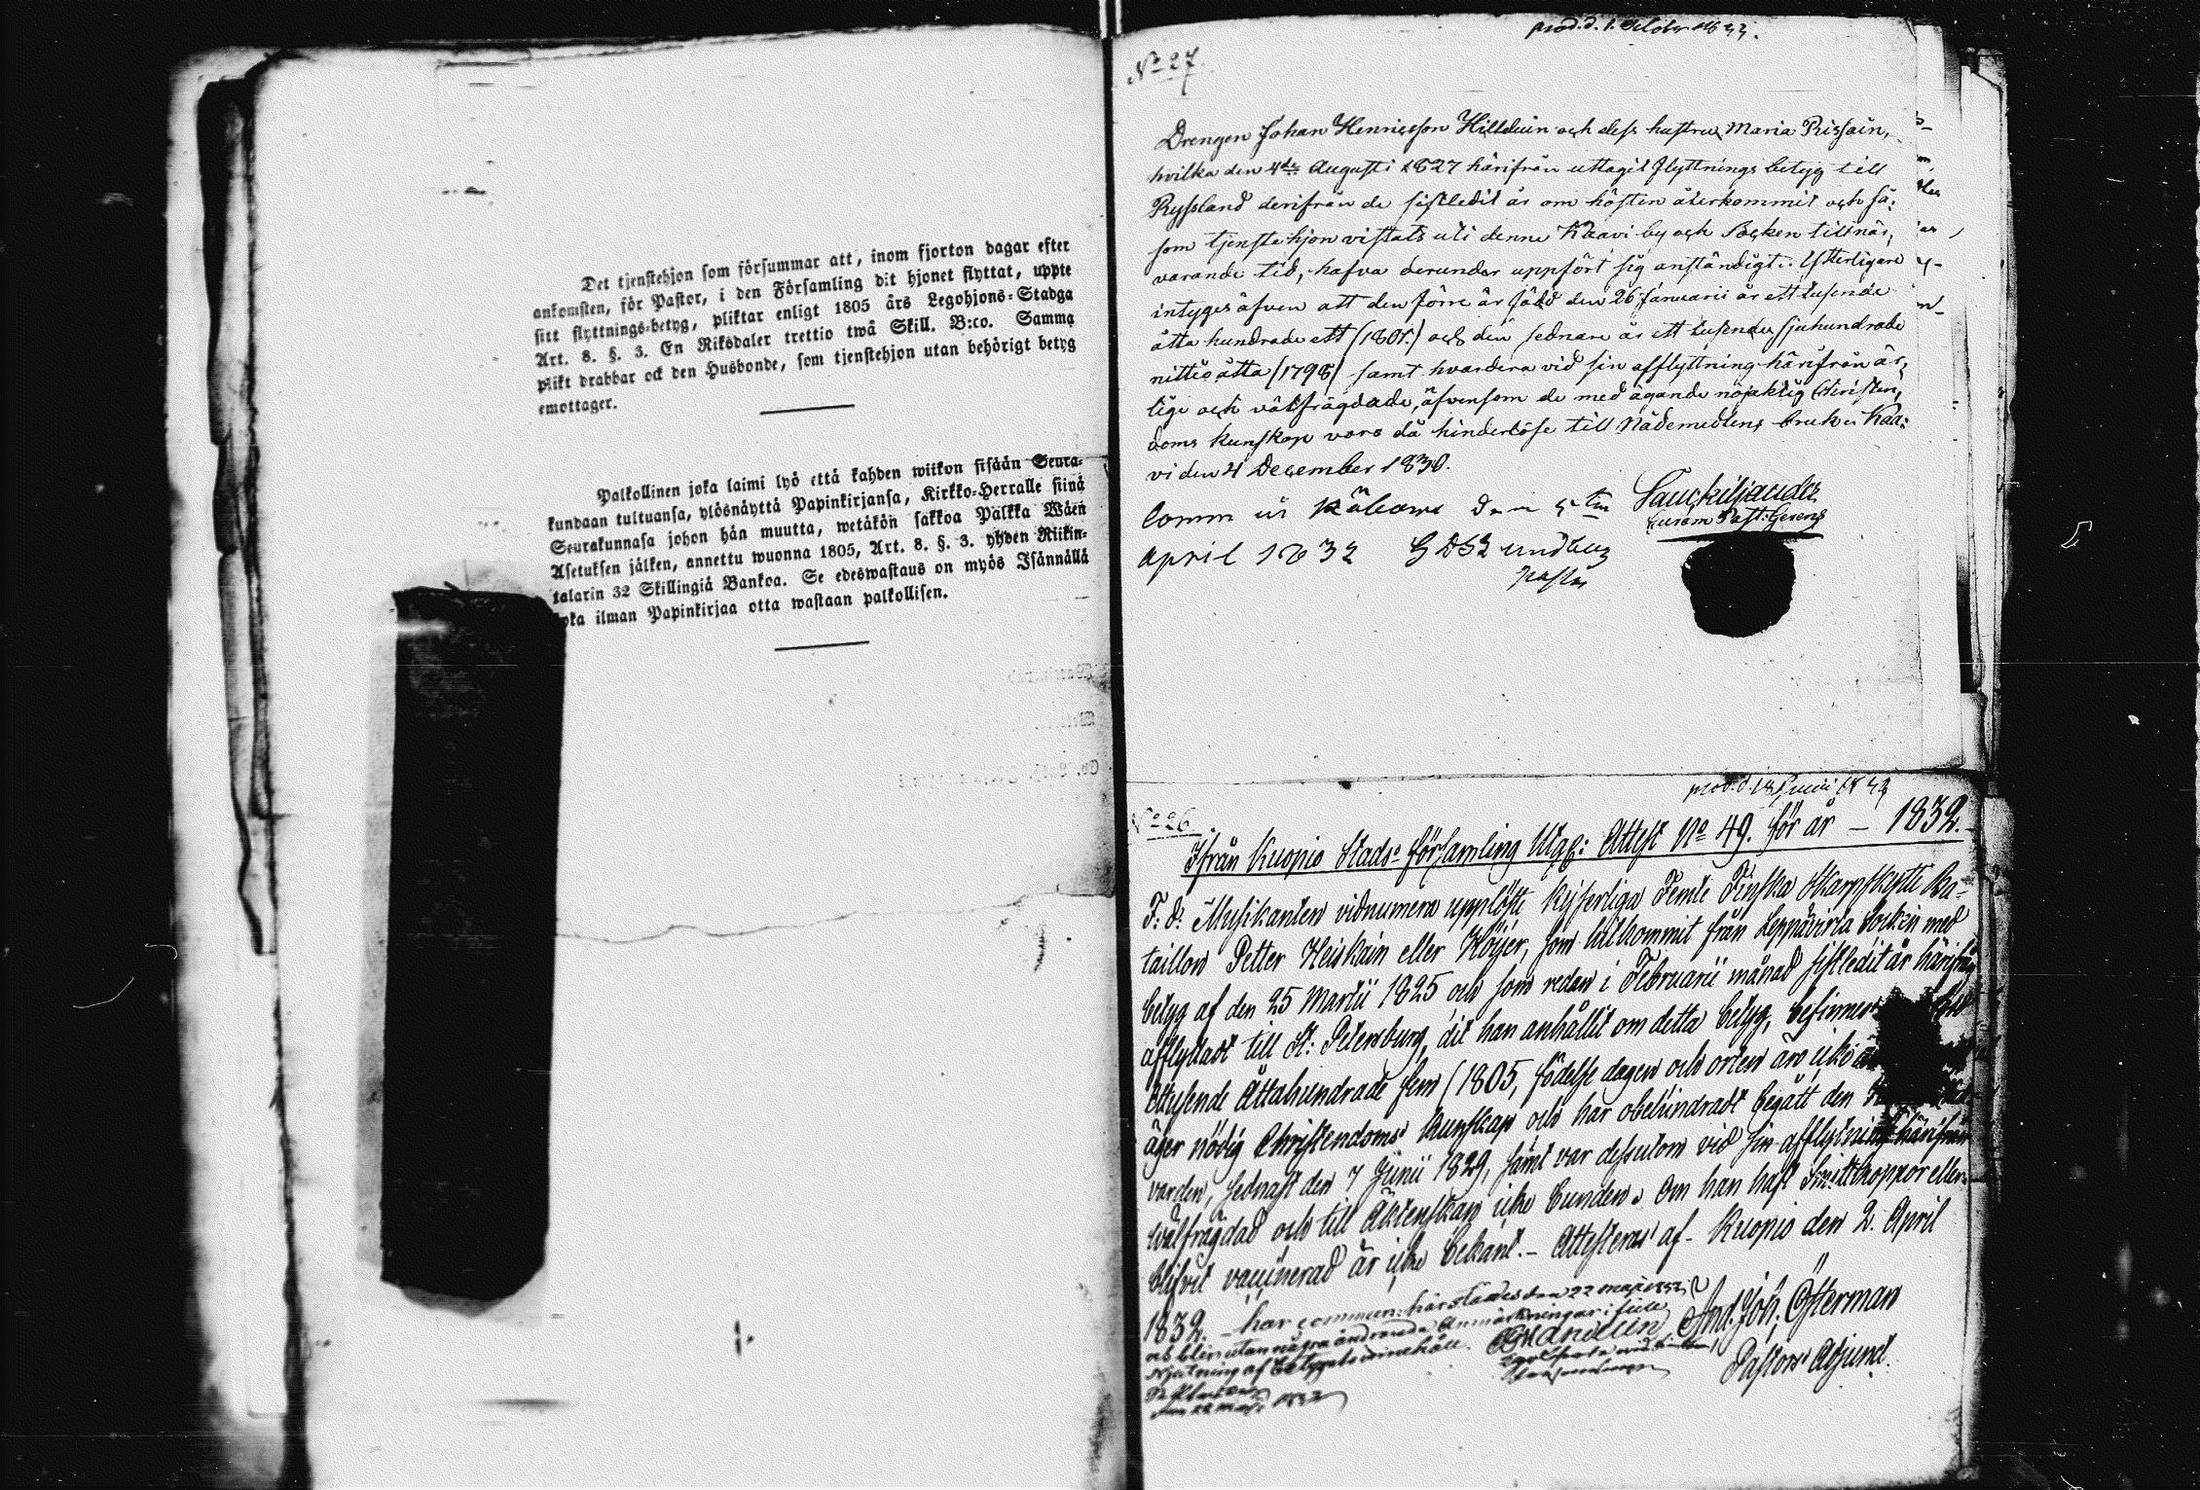 Det tjenstehjon som försummar att, inom fjorton dagar efter
ankomsten, för Pastor, i den Församling dit hjonet flyttat, uppte
sitt flyttnings-betyg, pliktar enligt 1805 års Legohjons-Stadga
Art. 8. §. 3. En Riksdaler trettio twå Skill. B:co. Samma
plikt drabbar ock den Husbonde, som tjenstehjon utan behörigt betyg
emottager.
Palkollinen joka laimi lyö että kahden wiikon sisään Seura-
kundaan tultuansa, ylösnäyttä Papinkirjansa, Kirkko-Herralle siinä
Seurakunnasa johon hän muutta, wetäkön sakkoa Palkka Wäen
Asetuksen jälken, annettu wuonna 1805, Art. 8. §. 3. yhden Riikin-
talarin 32 Skillingiä Bankoa. Se edeswastaus on myös Isännällä
joka ilman Papinkirjaa otta wastaan palkollisen.
prod. d. 1. October 1833.
No 27
Drengen Johan Henricsson Hilduin och dess hustru Maria Rissain,
hvilka den 4de Augusti 1827 härifrån uttagit flyttnings betyg till
Ryssland derifrån de sistledit år om hösten återkommit och så-
som tjenstehjon vistats uti denne Kaavi by och Socken tillnär-
varande tid, hafva derunder uppfört sig anständigt. Ytterligare
intyges äfven att den förre är född den 26 Januarii år ett tusende
åtta hundrade ett (1801.) och den sednare år ett tusende sjuhundrade
nittio åtta (1798) samt hvardera vid sin afflyttning härifrån är-
lige och välfrägdade, äfvensom de med ägande nöjaktig Christen-
doms kunskap voro då hinderlöse till Nådemedlens bruk. Kaa-
vi den 4 December 1830.
Comm i den 5tin
april 1832 G Lundberg
Pastor
No 26
prod. d. 18 Junii 1832
Ifrån Kuopio Stads församling Utgf: Attest No 49. för år - 1832.
F: d: Musikanten vid numera upplöste Kejserliga Femte Finska Skarpskytte Ba-
taillon Petter Heiskain eller Höijer, som hitkommit från Leppävirta Socken med
betyg af den 25 Martii 1825 och som redan i Februarii månad sistledit år härifrån
afflyttadt till St: Petersburg, dit han anhållit om detta betyg, befinnes
Ettusende Åttahundrade fem (1805, födelse dagen och orten äro icke
äger nödig Christendoms kunskap och har obehindradt begått den
varden, sednast den 7 Junii 1829, samt var dessutom vid sin afflyttning härifrån
wälfrägdad och till Äktenskap icke bunden. Om han haft Smittkoppor eller
blifvit vaccinerad är icke bekant. - Attesteras af - Kuopio den 2. April
1832. And. Joh. Österman
Pastors Adjunct.
har commun: härstädes den 22 Maji 1832
och blir utan några ändrande Anmärkningar i fulle
af betygets innehåll.